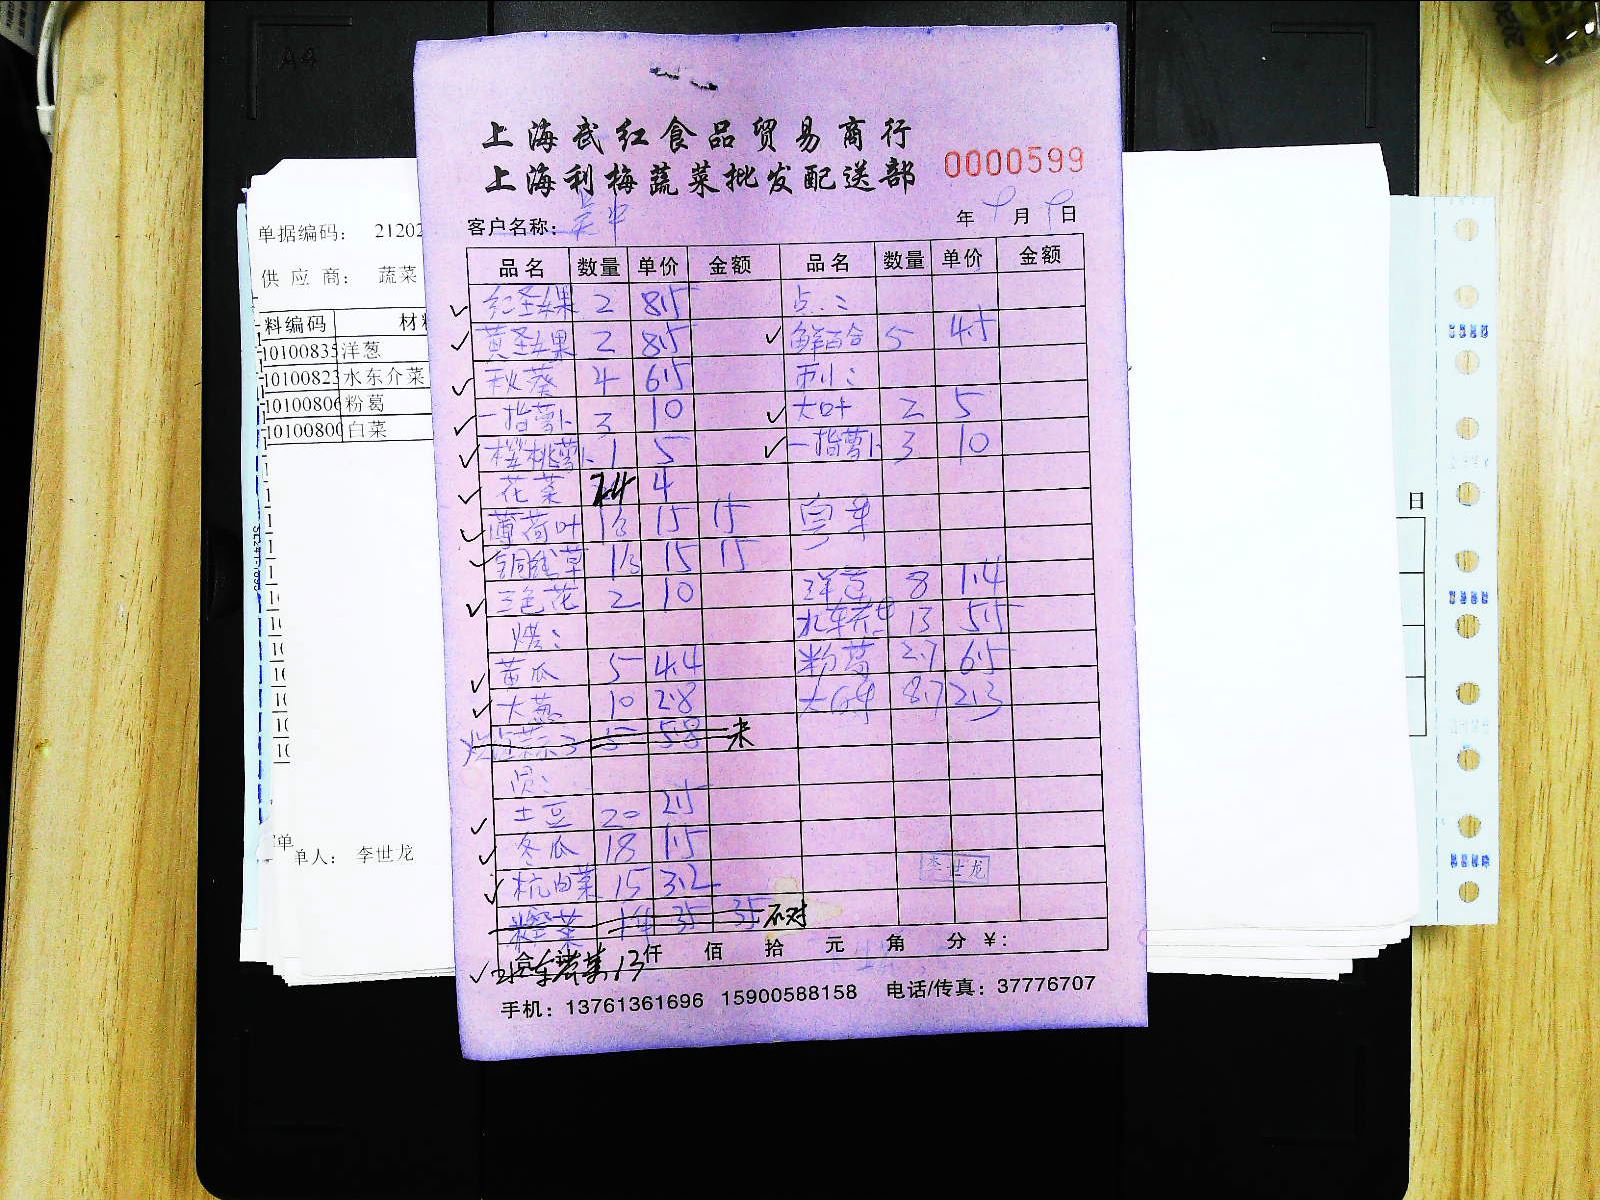 A4
上海武红食品贸易商行
上海利梅蔬菜批发配送部
0000599
客户名称：
年 9 月 9 日
品名 数量 单价 金额 品名 数量 单价 金额
红圣女果 2 8.5 点:
黄圣女果 2 8.5 鲜百合 5 4.5
秋葵 4 6.5 刺:
一指萝卜 3 10 大叶 2 5
樱桃萝卜 1 5 一指萝卜 3 10
花菜 4
薄荷叶 15 15
铜钱草 15 15
洋葱 8 1.4
三色花 2 10
水东芥菜 13 5.5
烧:
黄瓜 5 4.4 粉葛 2.7 6.5
大葱 10 2.8 大白菜 8.7 2.3
5 5.8 未
土豆 20 2.5
冬瓜 18 1.5
杭白菜 15 3.2
35 35 不对
李世龙
合计 仟 佰 拾 元 角 分 ¥:
水东芥菜 13
手机：13761361696 15900588158 电话/传真：37776707
单据编码： 21202
供应商： 蔬菜
料编码
10100835 洋葱
1010082 水东介菜
1010080 粉葛
1010080 白菜
单人： 李世龙
日